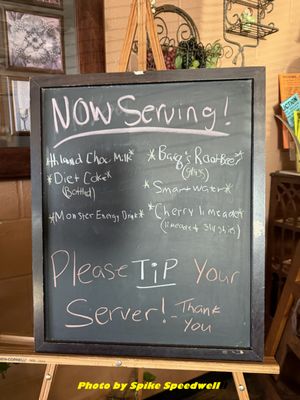 Now Serving!
Hiland Choc Milk*
*Barq's Rootbeer*
(Glass)
*Diet Coke*
(Bottled)
*Smart Water*
*Monster Energy Drink*
*Cherry limeades*
(limeade slushies)
Please TiP Your
Server! - Thank
You
Photo by Spike Speedwell